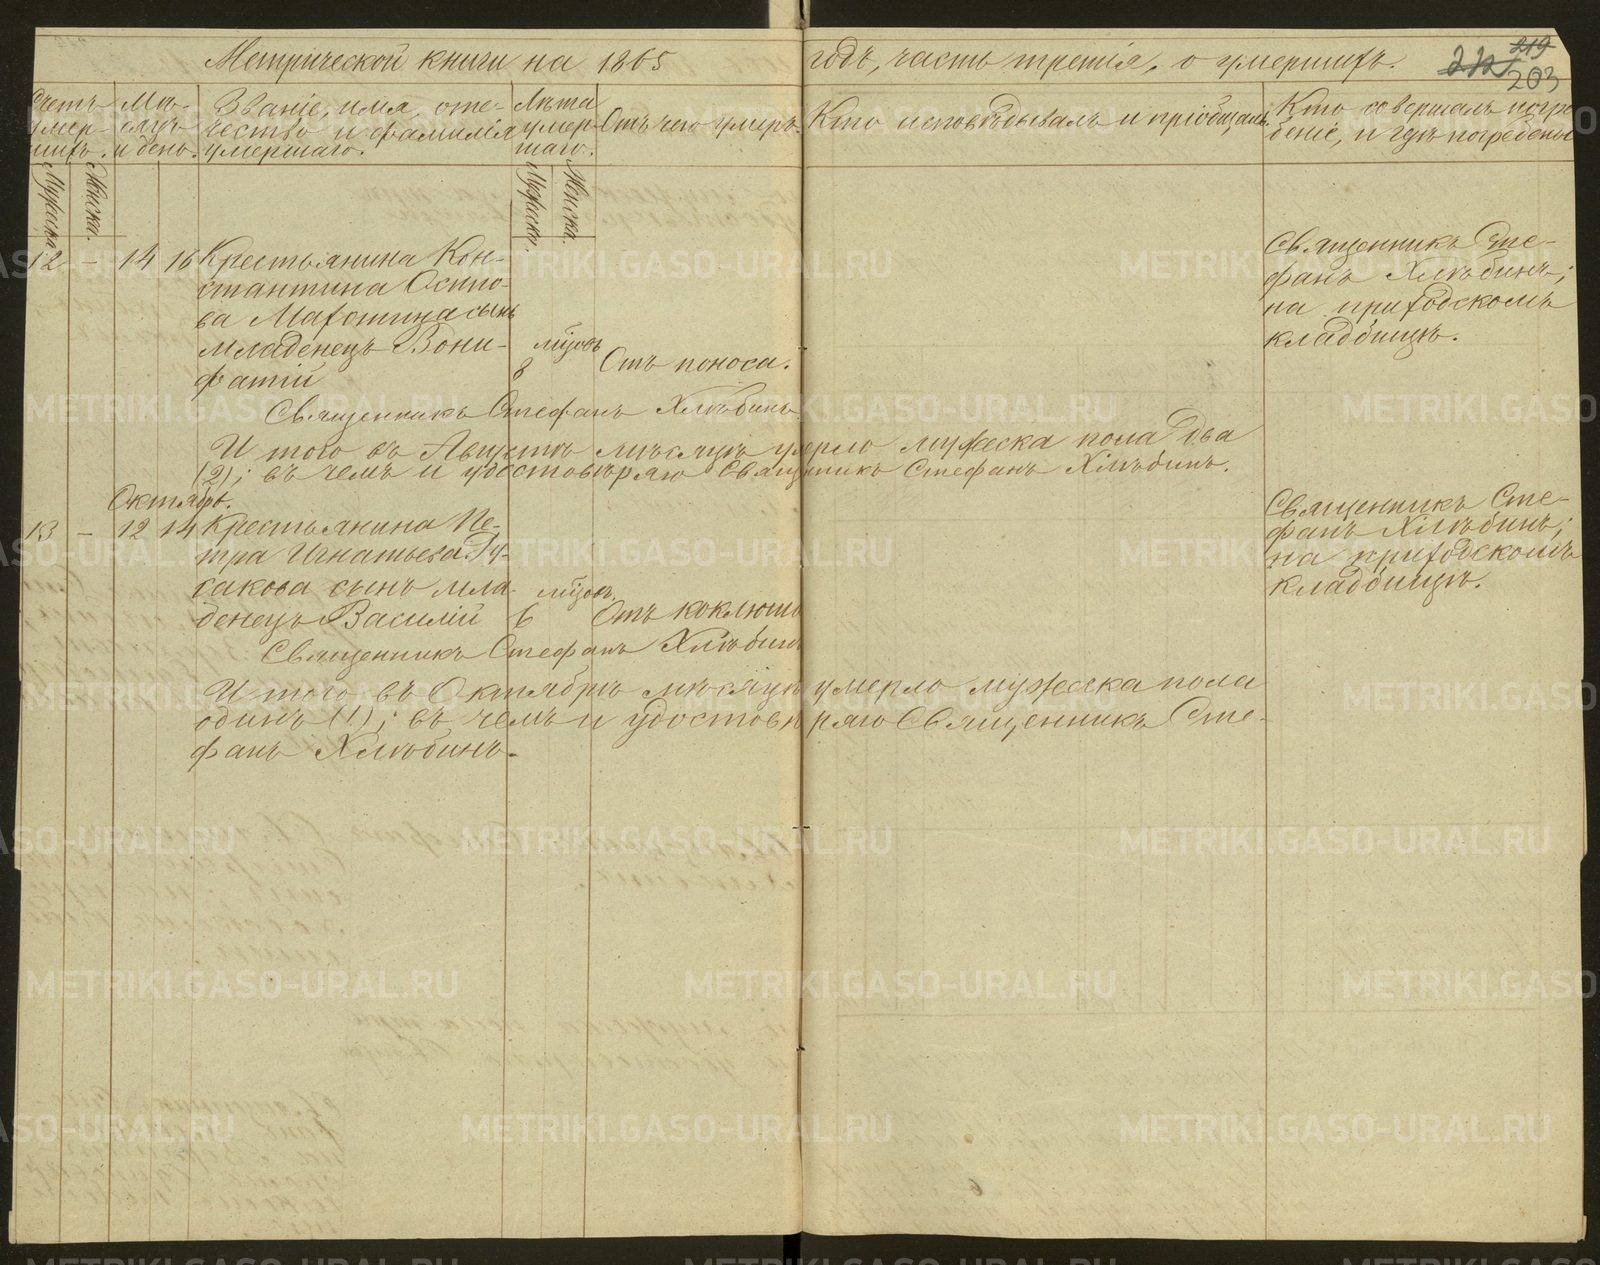 Метрической книги на 1865 годъ, часть третія, о умершихъ.
219
212
203
Счетъ умер- шихъ.
Мѣ- сяцъ и день.
Званіе, имя, оте- чество и фамилія умершаго.
Лѣта умер- шаго.
Отъ чего умеръ.
Кто исповѣдывалъ и пріобщалъ.
Кто совершалъ погре- беніе, и гдѣ погребены
Мужска.
Женска.
Мужска.
Женска.
12 – 14 16 Крестьянина Кон-
стантина Осипо-
ва сынъ
младенецъ Вони-
фатій
мѣсяцовъ
8
Отъ поноса.
Священникъ Сте-
фанъ Хлѣбинъ;
на приходскомъ
кладбищѣ.
Священникъ Стефанъ Хлѣбинъ
И того въ Августѣ мѣсяцѣ умерло мужеска пола два
(2); въ чемъ и удостовѣряю Священникъ Стефанъ Хлѣбинъ.
Октябрь.
13 – 12 14 Крестьянина Пе-
тра Игнатьева
сынъ мла-
денецъ Василій
6
Отъ коклюша
Священникъ Сте-
фанъ Хлѣбинъ;
на приходскомъ
кладбищѣ.
Священникъ Стефанъ Хлѣбинъ
И того въ Октябрѣ мѣсяцѣ умерло мужеска пола
одинъ (1); въ чемъ и удостовѣряю Священникъ Сте-
фанъ Хлѣбинъ.
METRIKI.GASO-URAL.RU